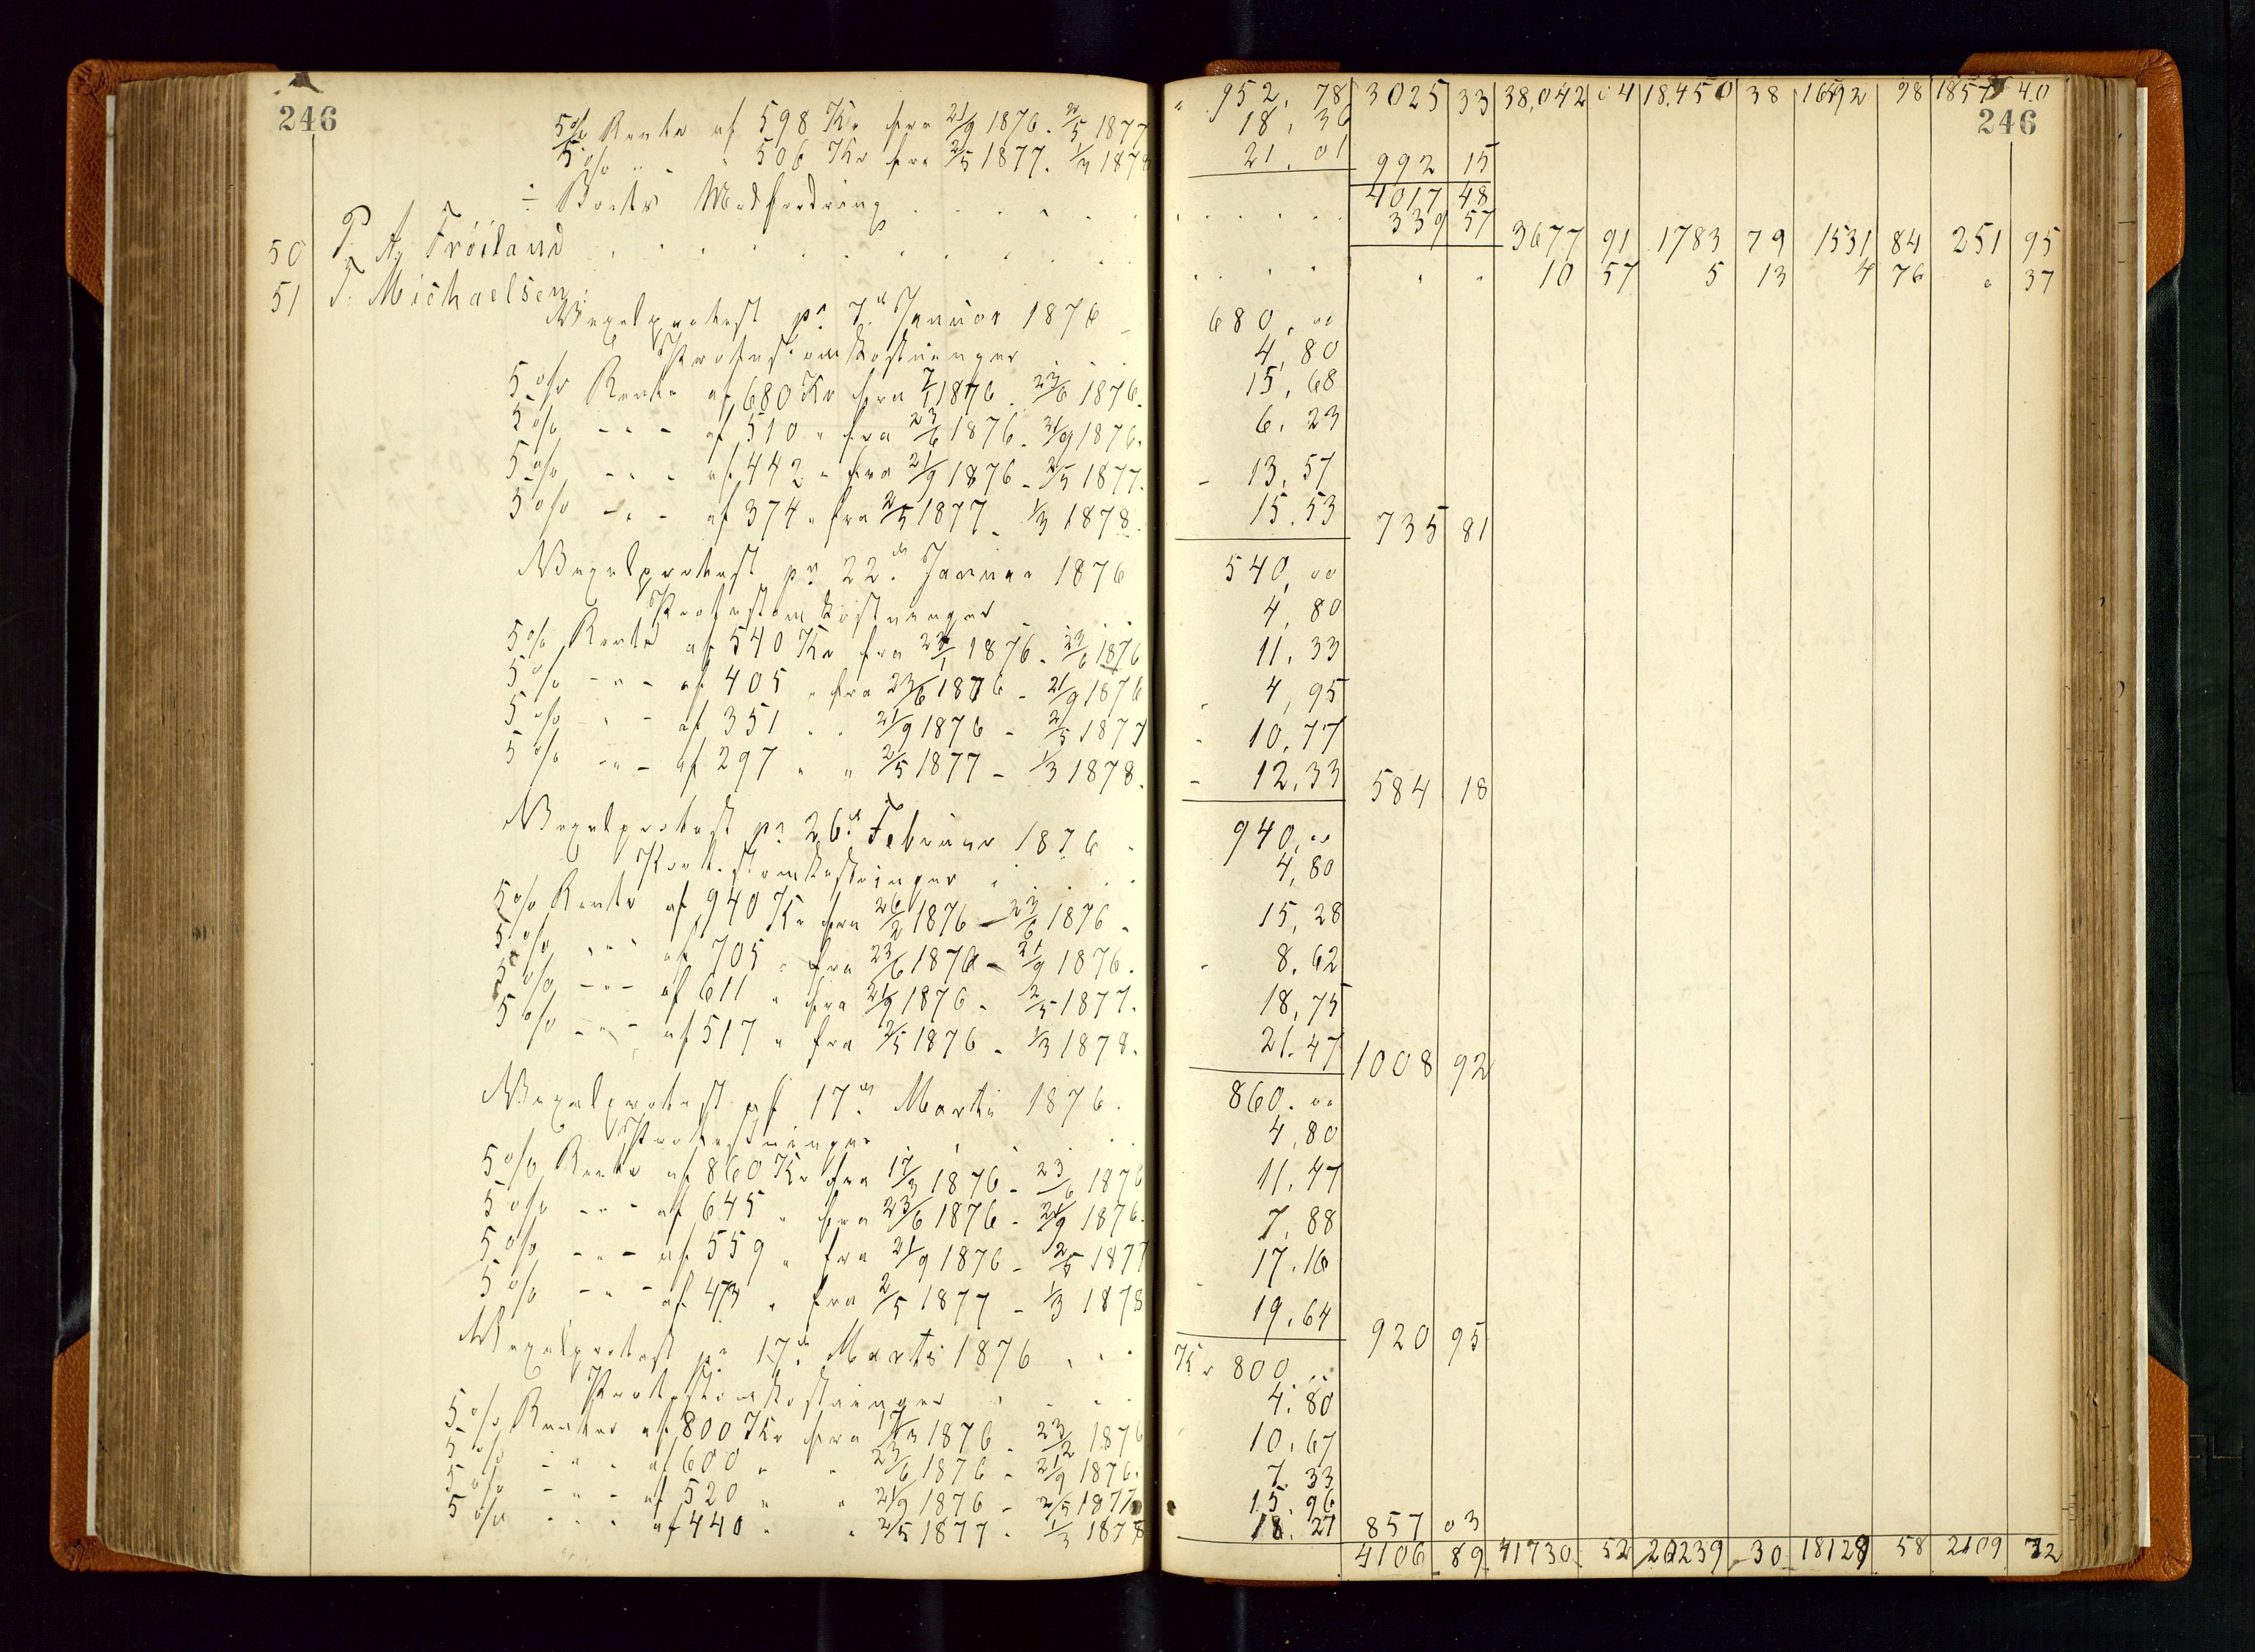 246
246
" 952, 78 3025 33 38,042 04 18,450 38 16592 98 1857 40
5% Rente af 598 Kr fra 21/9 1876 - 2/5 1877 18, 36
5% " - " 506 Kr fra 2/5 1877 - 1/3 1878 21, 01 992 15
4017 48
÷ Boets Modfordring 339 57 3677 91 1783 79 1531 84 251 95
50 P. A. Fröiland " " 10 57 5 13 4 76 " 37
51 T. Michaelsen:
Wexelprotest pr 7de Januar 1876 - 680, 00
Protestomkostninger 4, 80
5% Rente af 680 Kr fra 7/1 1876 - 23/6 1876. 15, 68
5% - " - af 510 " fra 23/6 1876 - 21/9 1876. 6, 23
5% - " - af 442 " fra 21/9 1876 - 2/5 1877. - 13, 57
5% - " - af 374 " fra 2/5 1877 - 1/3 1878. 15. 53 735 81
Wexelprotest pr 22de Januar 1876 540, 00
Protestomkostninger 4, 80
5% Rente af 540 Kr fra 22/1 1876 - 23/6 1876 11. 33
5% - " - af 405 " fra 23/6 1876 - 21/9 1876 4, 95
5% - " - af 351 " " 21/9 1876 - 2/5 1877 - 10, 77
5% - " - af 297 " " 2/5 1877 - 1/3 1878. - 12, 33 584 18
Wexelprotest pr 26de Februar 1876 - 940, 00
Protestomkostninger 4, 80
5% Rente af 940 Kr fra 26/2 1876 - 23/6 1876 - 15, 28
5% " " " af 705 " fra 23/6 1876 - 21/9 1876. 8. 62
5% - " - af 611 " fra 21/9 1876 - 2/5 1877. 18, 75
5% - " - af 517 " fra 2/5 1876 - 1/3 1878. 21. 47 1008 92
Wexelprotest pr 17de Marts 1876. 860. 00
4, 80
5% Rente af 860 Kr fra 17/3 1876 - 23/6 1876 11. 47
5% - " - af 645 " fra 23/6 1876 - 21/9 1876. 7, 88
5% - " - af 559 " fra 21/9 1876 - 2/5 1877 17. 16
5% - " - af 473 " fra 2/5 1877 - 1/3 1878 19. 64 920 95
Wexelprotest pr 17de Marts 1876 Kr 800 "
Protestomkostninger 4. 80
5% Renter af 800 Kr fra 17/3 1876 - 23/12 1876 10, 67
5% - " - af 600 " " 23/6 1876 - 21/9 1876. 7. 33
5% - " - af 520 " " 21/9 1876 - 2/5 1877 15. 96
5% " " " af 440 " " 2/5 1877 - 1/3 1878 18. 27 857 03
4106 89 41730 52 20239 30 18129 58 2109 72